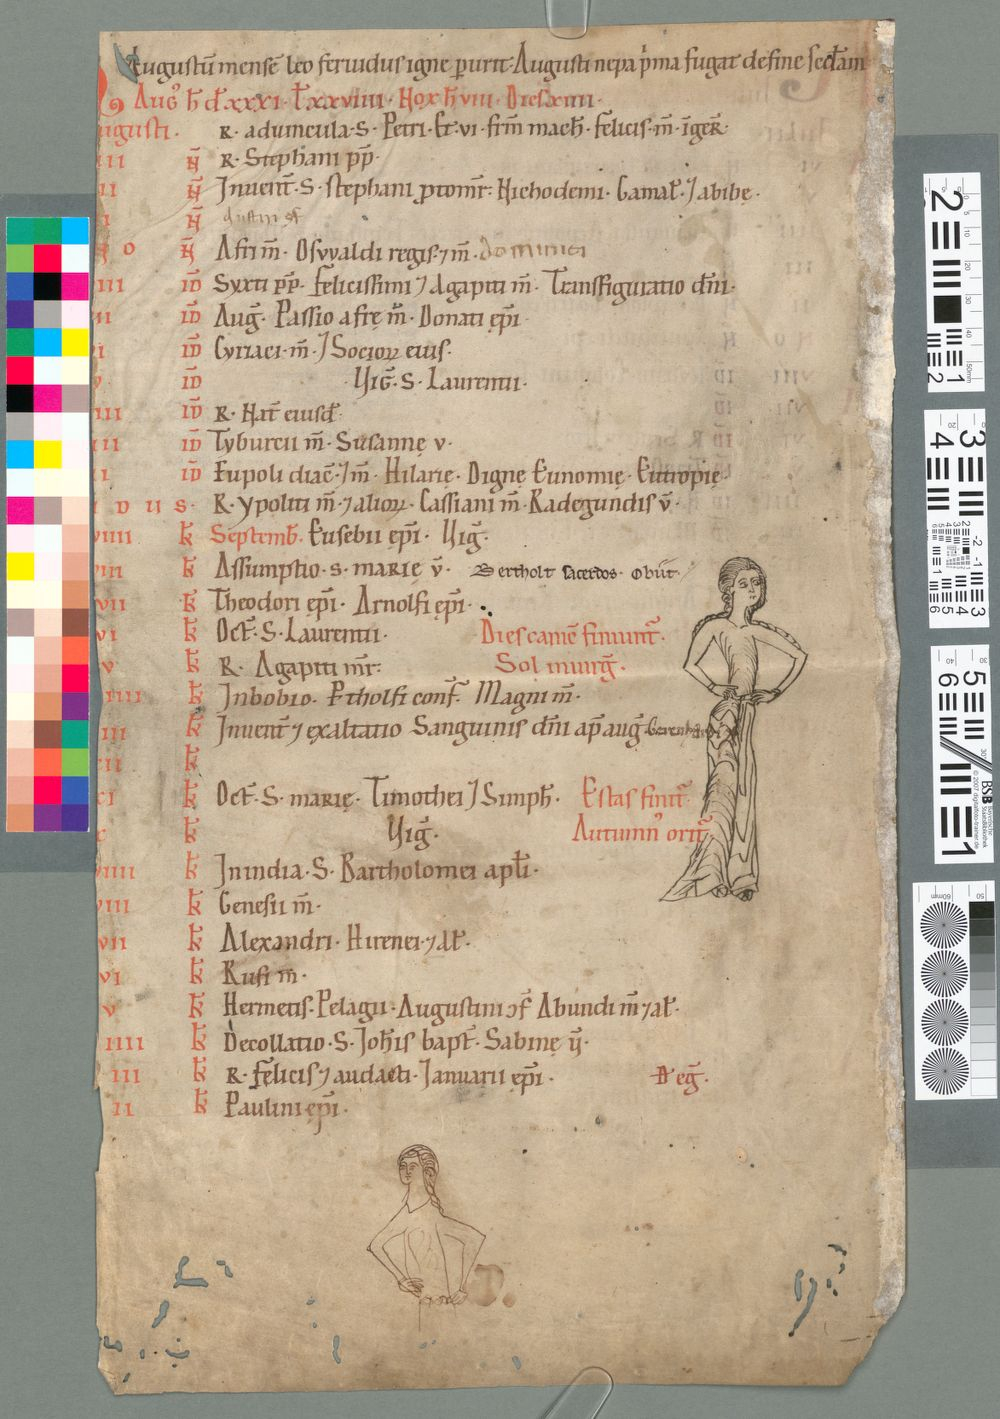 Augustū mensē leo feruidus igne purit. Augusti nepa p'ma fugat de fine secdam
Auḡ h̄ d̄ xxxi. L̄ xxviiii. Nox h̄ viii. Dies xiiii.
ugusti. R. aduincula. S. Petri. Et. vi. frm̄ mach̄. Felicis. m̄. iger̄.
iii N̄ R. Stephani pp̄.
ii N̄ Inuent̄. S. stephani ptomr̄. Nichodemi. Gamal̄. ⁊ abibe.
i N̄
o N̄ Afri m̄. Osvvaldi regis. ⁊ m̄. dominici
iii iD̄ Syxti pp̄. Felicissimi ⁊ Agapiti m̄. Transfiguratio dn̄i.
ii iD̄ Auḡ. Passio afrę m̄. Donati epī.
i iD̄ Cyriaci. m̄. ⁊ Socioꝝ eius.
v iD̄ Uiḡ. S. Laurentii.
iii iD̄ R. Nat̄ eiusd̄.
iii iD̄ Tyburcii m̄. Susannę v.
i iD̄ Eupoli diac̄. ⁊ m̄. Hilarię. Dignę Eunomię. Eutropię
dus. R. ypoliti m̄. ⁊ alioꝝ. Cassiani m̄. Radegundis v̄.
viiii k̄ Septemb̄. Eusebii epī. Uiḡ.
viii k̄ Assumptio. s. marię v̄. Bertholt sacerdos. obiit
vii k̄ Theodori epī. Arnolfi epī.
vi k̄ Oct̄. S. Laurentii. Dies canic̄ finiunt̄.
v k̄ R. Agapiti mr̄. Sol in uirḡ.
iiii k̄ In bobio. Etholfi conf̄. Magni m̄.
iii k̄ Inuent̄ ⁊ exaltatio Sanguinis dn̄i ap̄ auḡ.
ii k̄
xi k̄ Oct̄. S. marię. Timothei ⁊ Simph̄. Estas finit̄
x k̄ Uiḡ. Autumn' orit̄
viiii k̄ In india. S. Bartholomei apl̄i.
viii k̄ Genesii m̄.
vii k̄ Alexandri. Hirenei. ⁊ al̄.
vi k̄ Rufi m̄.
v k̄ Hermetis. Pelagii. Augustini ↄf̄ Abundi m̄ ⁊ al̄.
iiii k̄ Decollatio. S. Joh̄is bapt̄. Sabinę v̄.
iii k̄ R. Felicis ⁊ audacti. Januarii epī. D̄ eḡ.
ii k̄ Paulini epī.